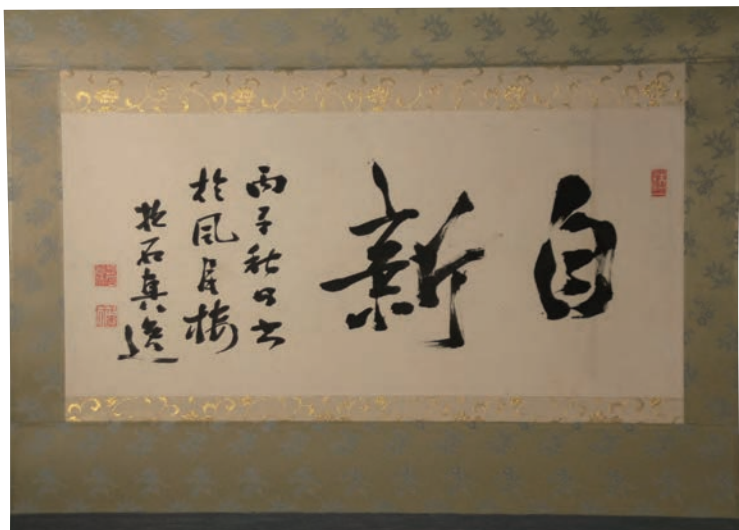 自新
丙子秋日書
於風月楼
拙石真逸